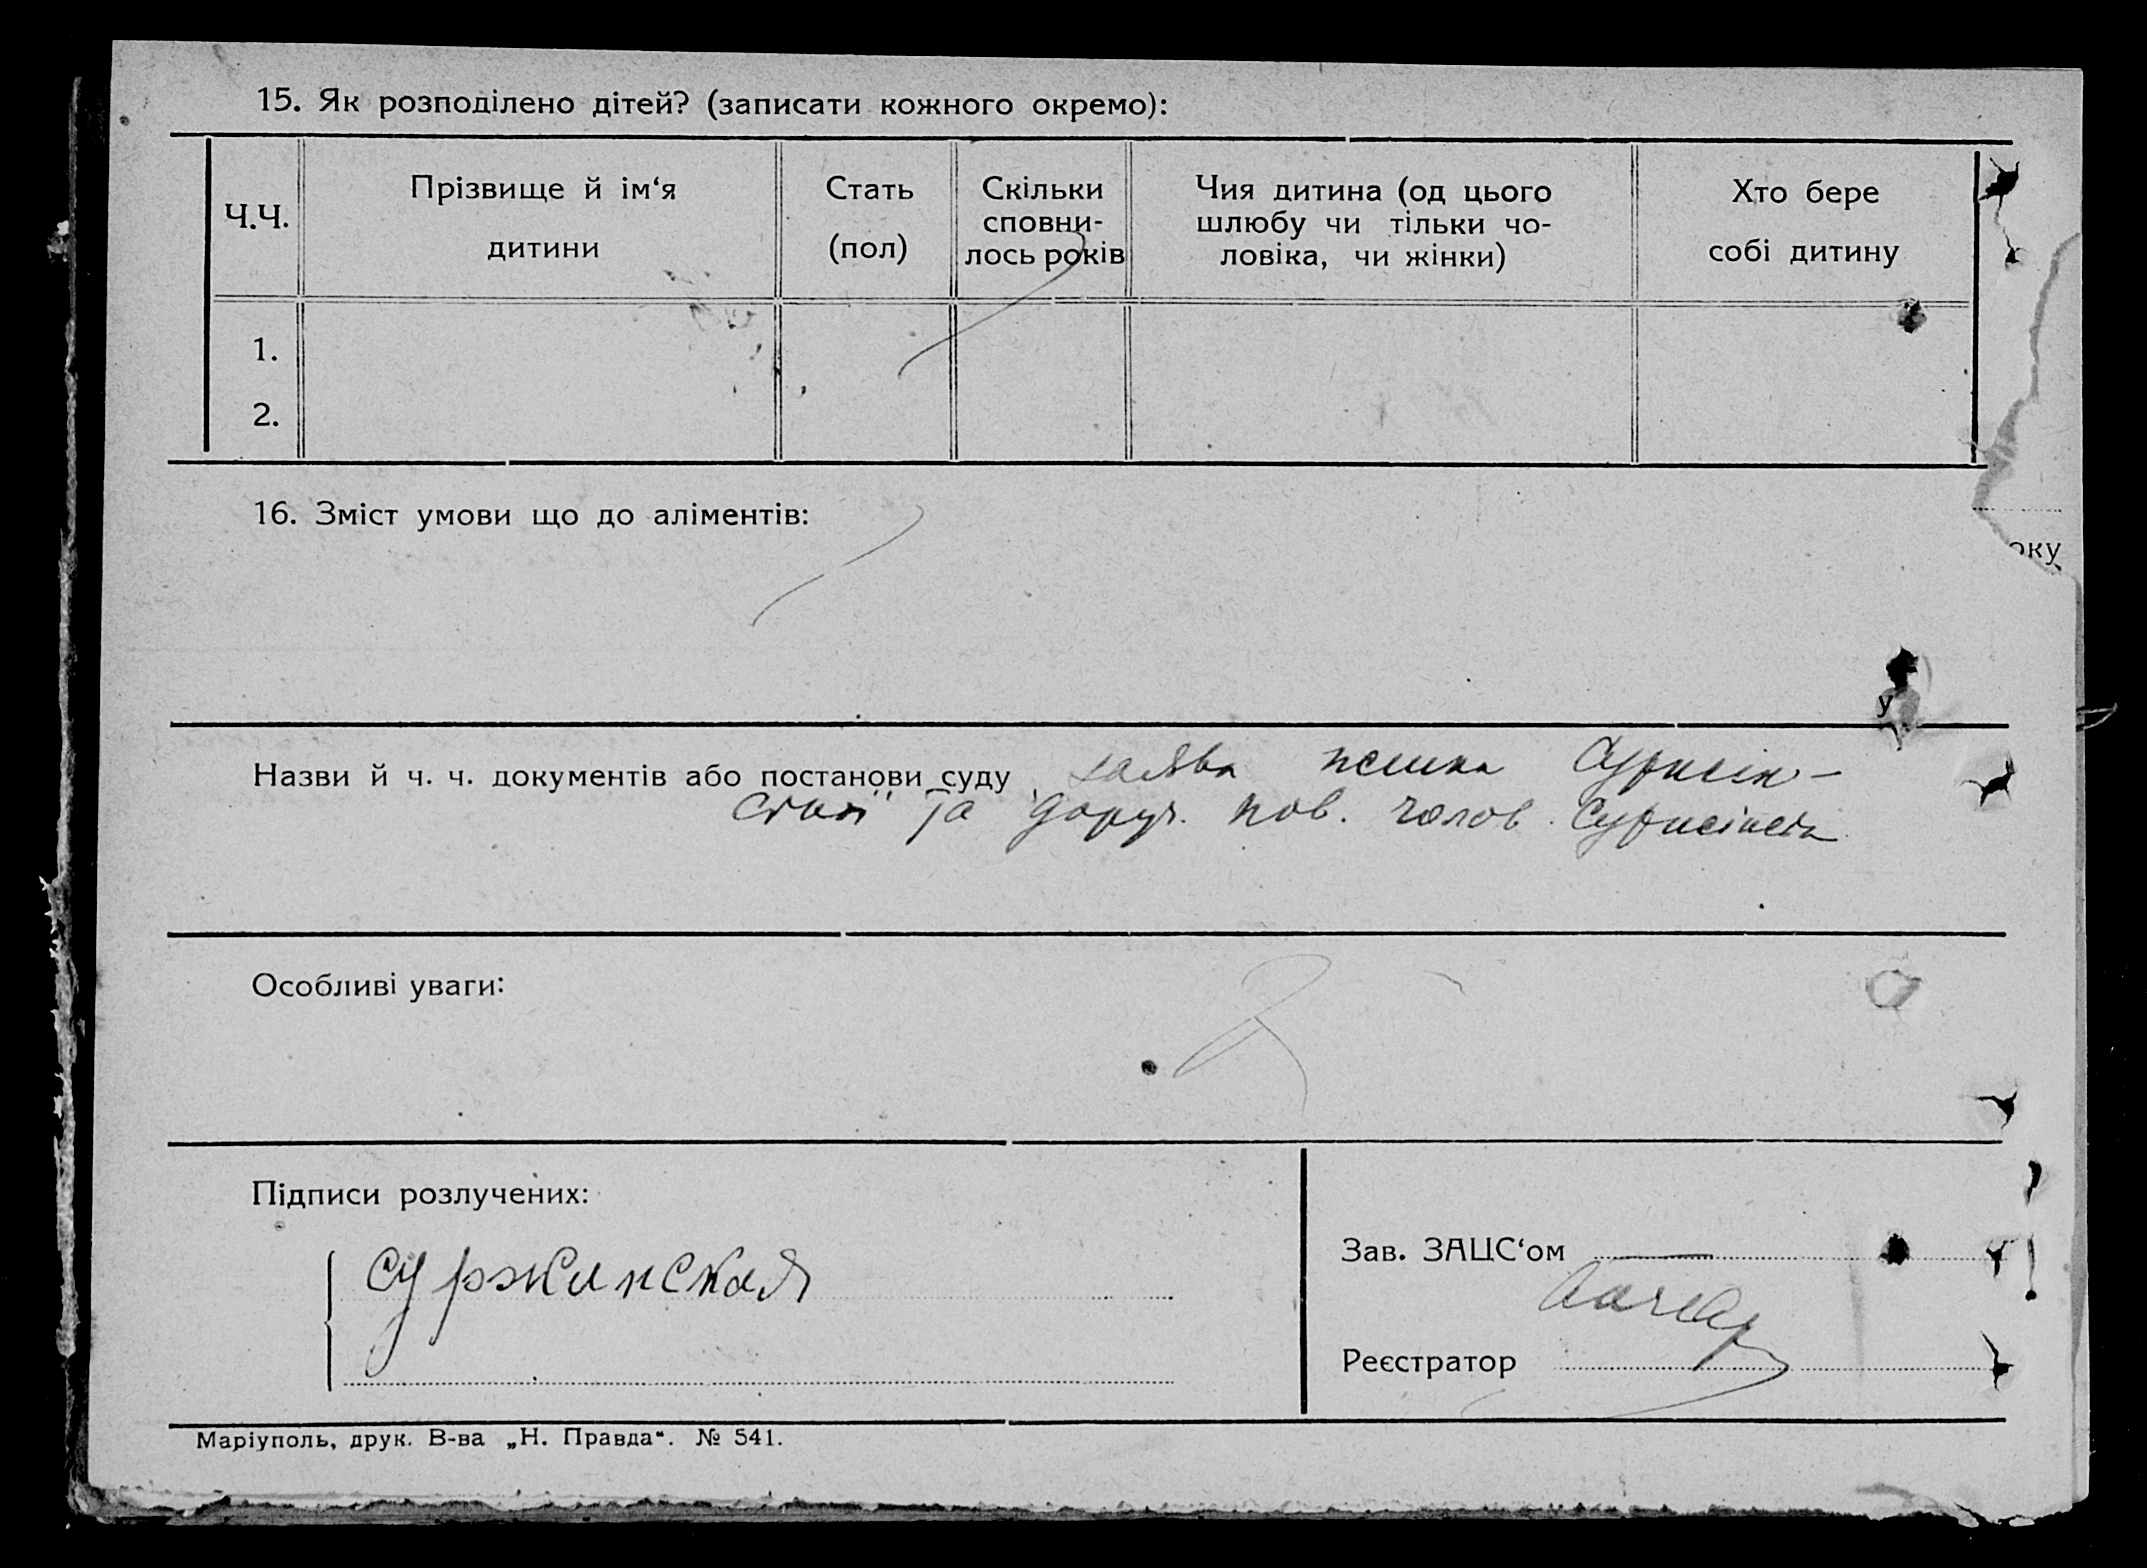 15. Як розподілено дітей? (записати кожного окремо):
Ч.Ч.
Прізвище й ім‘я
дитини
Стать
(пол)
Скільки
сповни-
лось років
Чия дитина (од цього
шлюбу чи тільки чо-
ловіка, чи жінки)
Хто бере
собі дитину
1.
2.
16. Зміст умови що до аліментів:
оку
у
Назви й ч. ч. документів або постанови суду заява жінки Суржін-
ської та доруч. пов. чолов. Суржінськ
Особливі уваги:
Підписи розлучених:
Суржинская
Зав. ЗАЦС‘ом
Реєстратор
Маріуполь, друк. В-ва „Н. Правда“. № 541.